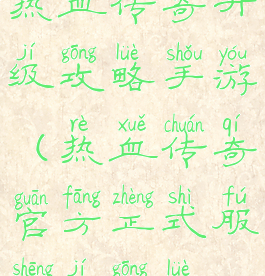 热血传奇升
jí gōng lüè shǒu yóu
级攻略手游
rè xuě chuán qí
（热血传奇
guān fāng zhèng shì fú
官方正式服
shēng jí gōng lüè